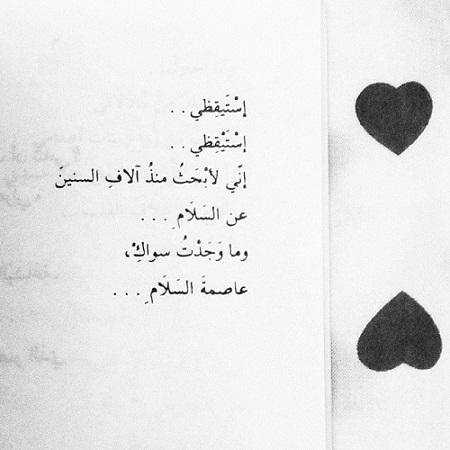 إسْتَيقِظي..
إسْتَيْقِظي..
إنّي لأبْحَثُ منذُ آلافِ السنينَ
عن السَلَامِ...
وما وَجَدْتُ سواكِ،
عاصمةَ السَلَامِ...